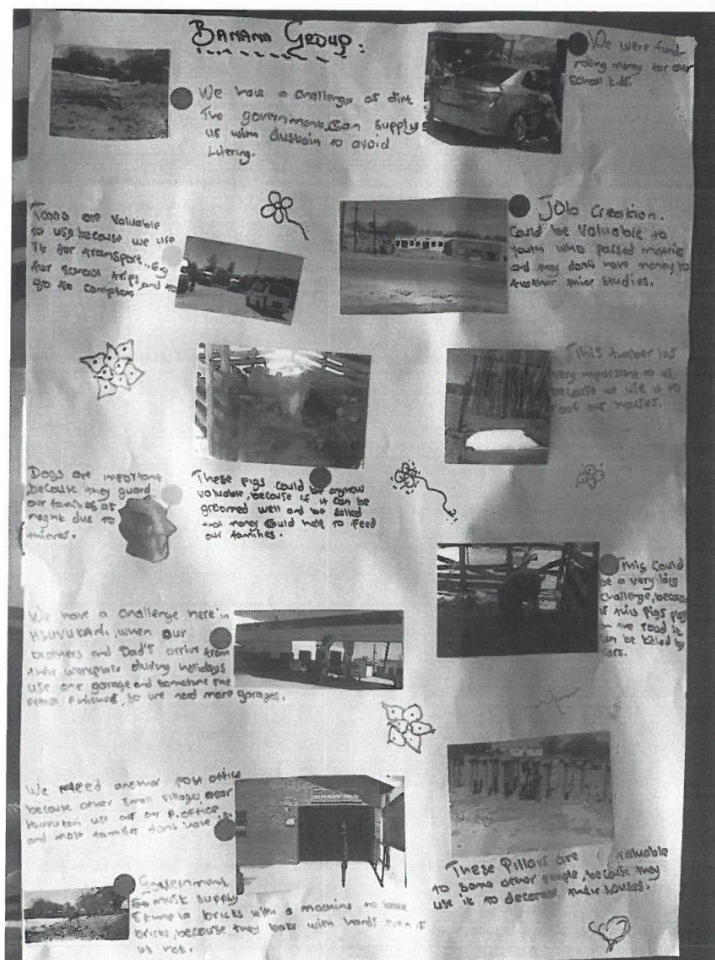 Banana Group:
We have a challenge of dirt
The government can supply
us with dustbin to avoid
Litering.
We were fund
raising money for our
school kids.
are valuable
to use because we use
it for transport. Eg
for school trips, and to
go to
Job Creation.
Could be valuable to
youth who passed matric
and they don't have money to
further their studies.
This timber is
very important to us,
because we use it to
roof our houses.
Dogs are important
because they guard
our families at
night due to
thieves.
These pigs could be
valuable, because if it can be
groomed well and be
that money could help to feed
our families.
This could
be a very big
challenge, because
if this pigs
in the road it
can be killed by
cars.
We have a challenge here in
when our
brothers and Dad's arrive from
their workplace during holidays
use one garage and sometime the
petrol finished, so we need more garages.
We need another post office
because other small villages near
use our p.office
and most families don't have
Government
must supply
bricks with a machine to
bricks, because they with hands even if
its hot.
These Pillars are valuable
to some other people, because they
use it to decorate their houses.